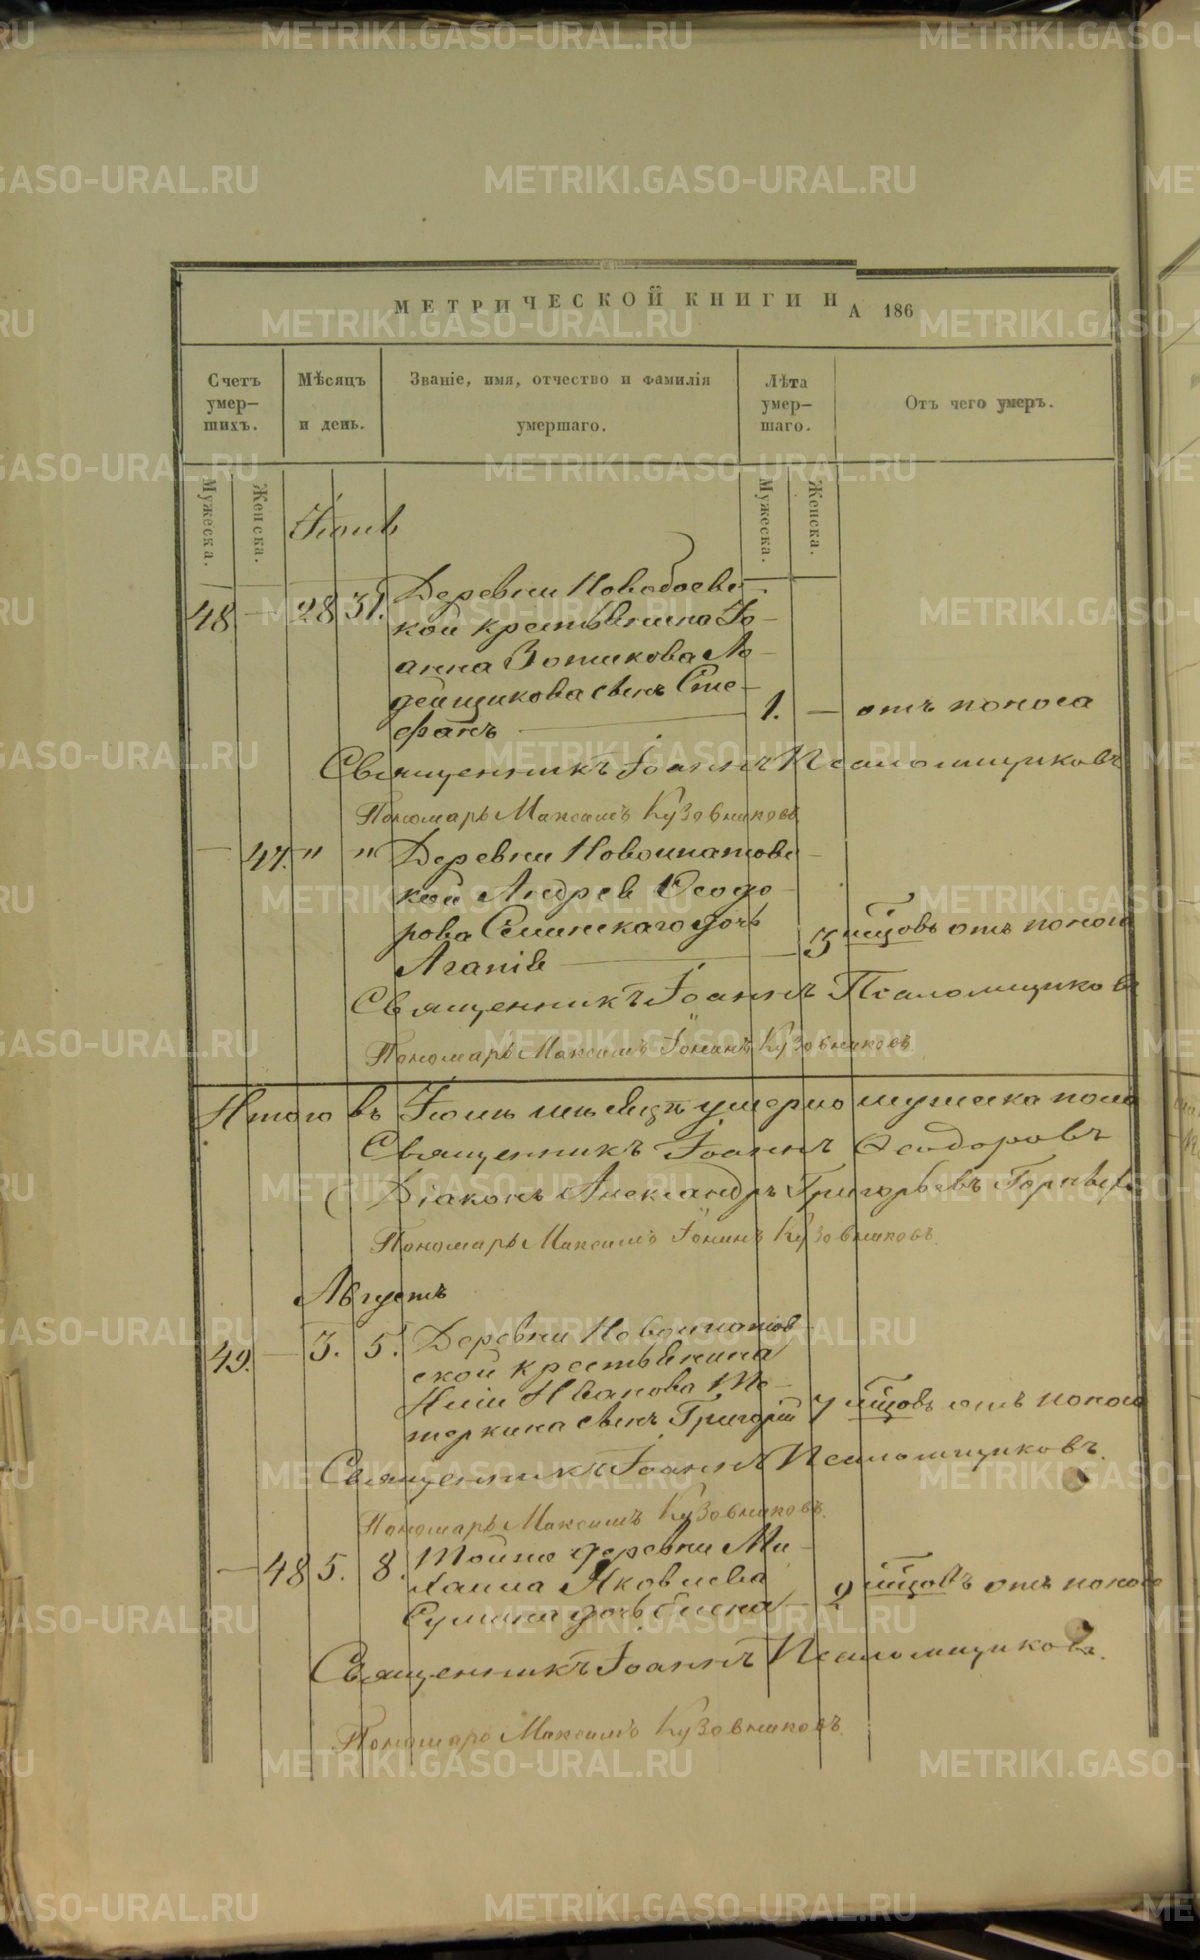 МЕТРИЧЕСКОЙ КНИГИ НА 186
Счетъ умер–шихъ.
Мѣсяцъ и день.
Званіе, имя, отчество и фамилія умершаго.
Лѣта умер–шаго.
Отъ чего умеръ.
Мужеска.
Женска.
Мужеска.
Женска.
Іюль
48 — 28 31. Деревни Новобоевс
кой крестьянина Іо–
анна Зотикова Ло–
дейщикова сынъ Сте–
фанъ — 1. — отъ поноса
Священникъ Іоаннъ Псаломщиковъ
Пономарь Максимъ Кузовниковъ
— 47. " " Деревни Новоипатовс–
кой Андрея Ѳеодо–
рова Семинскаго дочь
Агапія — 3 мцовъ отъ поноса
Священникъ Іоаннъ Псаломщиковъ
Пономарь Максимъ Іонинъ Кузовниковъ
Итого въ Іюлѣ мцѣ умерло мужеска пола
Священникъ Іоаннъ Ѳеодоровъ
Діаконъ Александръ Григорьевъ
Пономарь Максимъ Іонинъ Кузовниковъ.
Августъ
49. — 3. 5. Деревни Новоипатов–
ской крестьянина
Ивanова Ше–
меркина сынъ Григорій 7 мцовъ отъ поноса
Священникъ Іоаннъ Псаломщиковъ.
Пономарь Максимъ Кузовниковъ.
— 48 5. 8. Тойже деревни Ми–
хаила Яковлева
дочь Елена — 2 мцовъ отъ поноса
Священникъ Іоаннъ Псаломщиковъ.
Пономарь Максимъ Кузовниковъ.
METRIKI.GASO-URAL.RU